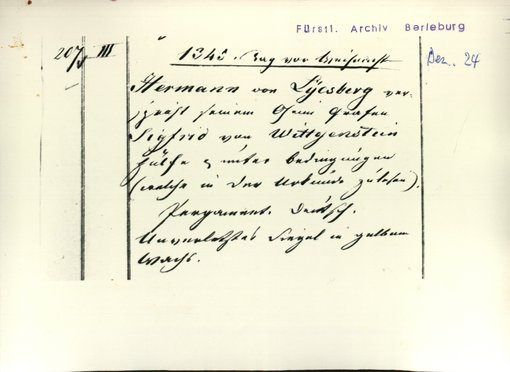 Fürstl. Archiv Berleburg
207 III
Dez. 24
1343. Tag vor
Hermann von Lysberg ver-
spricht seinem Oheim Grafen
Sigfrid von Wittgenstein
Hülfe unter Bedingungen
(welche in der Urkunde zu lesen).
Pergament. Deutsch.
Unverletztes Siegel in gelbem
Wachs.